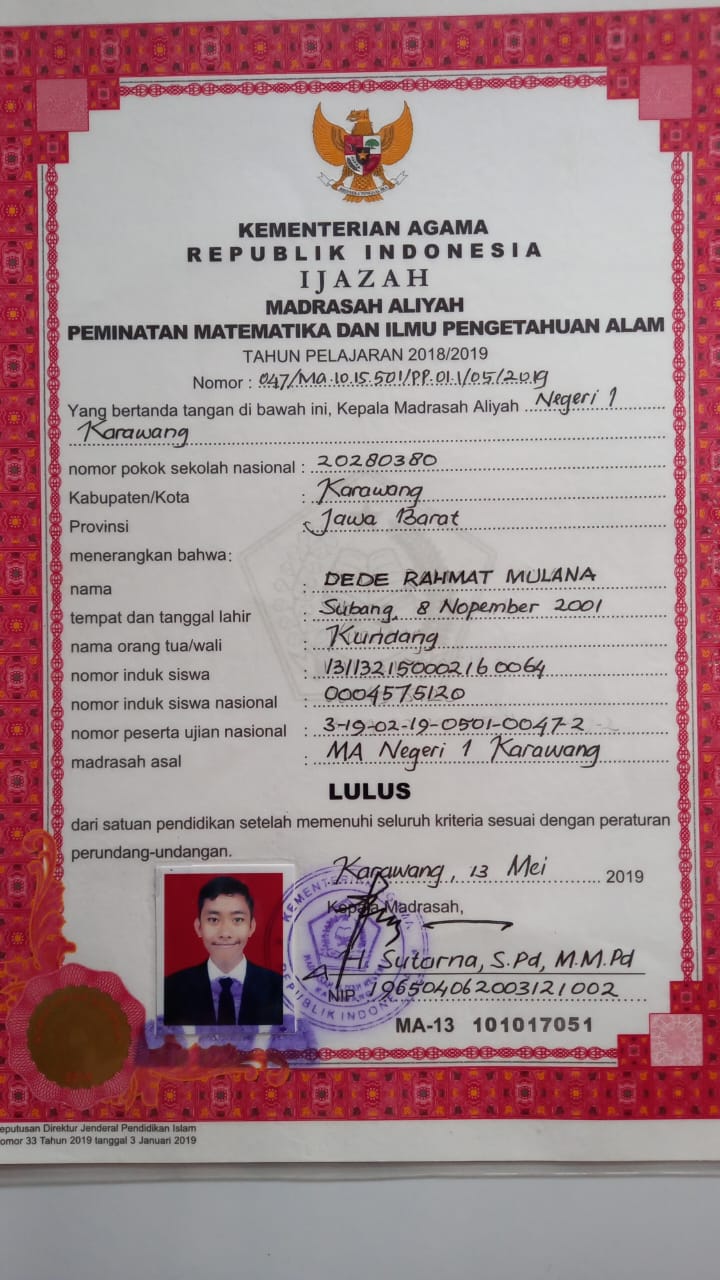 KEMENTERIAN AGAMA
REPUBLIK INDONESIA
IJAZAH
MADRASAH ALIYAH
PEMINATAN MATEMATIKA DAN ILMU PENGETAHUAN ALAM
TAHUN PELAJARAN 2018/2019
Nomor : 047/Ma.10.15.501/PP.01.1/05/2019
Yang bertanda tangan di bawah ini, Kepala Madrasah Aliyah Negeri 1
Karawang
nomor pokok sekolah nasional : 20280380
Kabupaten/Kota : Karawang
Provinsi : Jawa Barat
menerangkan bahwa:
nama : DEDE RAHMAT MULANA
tempat dan tanggal lahir : Subang, 8 Nopember 2001
nama orang tua/wali : Kundang
nomor induk siswa : 131132150002160064
nomor induk siswa nasional : 0004575120
nomor peserta ujian nasional : 3-19-02-19-0501-0047-2
madrasah asal : MA Negeri 1 Karawang
LULUS
dari satuan pendidikan setelah memenuhi seluruh kriteria sesuai dengan peraturan
perundang-undangan.
Karawang, 13 Mei 2019
Kepala Madrasah,
H. Sutarna, S.Pd, M.M.Pd
NIP. 196504062003121002
MA-13 101017051
eputusan Direktur Jenderal Pendidikan Islam
omor 33 Tahun 2019 tanggal 3 Januari 2019